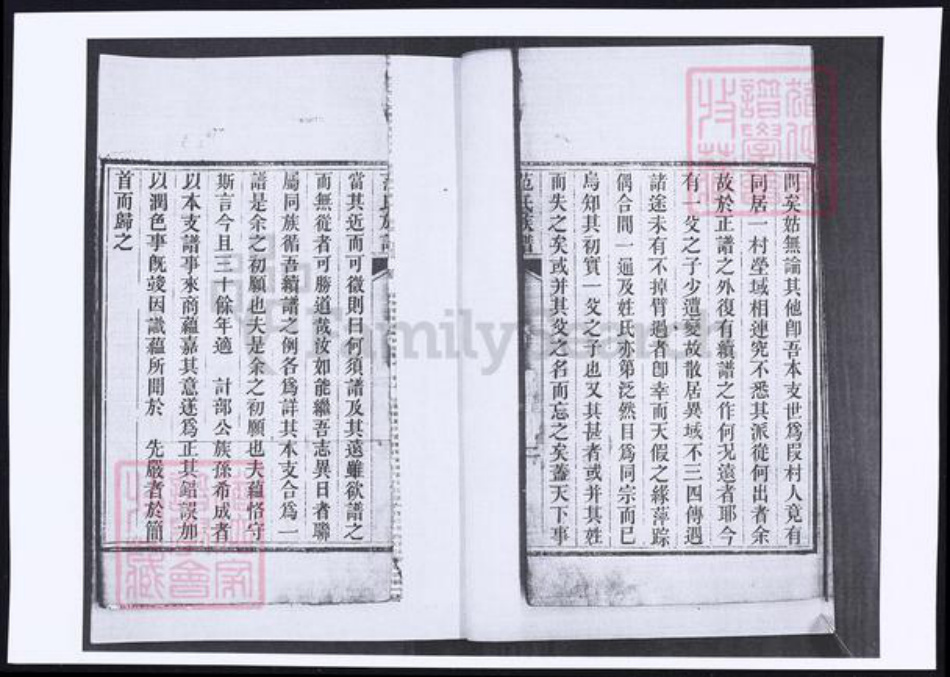 問矣姑無論其他卽吾本支世爲叚村人竟有
同居一村塋域相連究不悉其派從何出者余
故於正譜之外復有續譜之作何况遠者耶今
有一父之子少遭變故散居異域不三四傳遇
諸途未有不掉臂過者卽幸而天假之緣萍踪
偶合問一通及姓氏亦第泛然目爲同宗而已
烏知其初實一父之子也又其甚者或并其姓
而失之矣或并其父之名而忘之矣蓋天下事
范氏族譜
二
范氏族譜
當其近而可徵則曰何須譜及其遠雖欲譜之
而無從者可勝道哉汝如能繼吾志異日者聯
屬同族循吾續譜之例各爲詳其本支合爲一
譜是余之初願也夫是余之初願也夫蘊恪守
斯言今且三十餘年適 計部公族孫希成者
以本支譜事來商蘊嘉其意遂爲正其錯誤加
以潤色事旣竣因識蘊所聞於 先嚴者於簡
首而歸之
FamilySearch